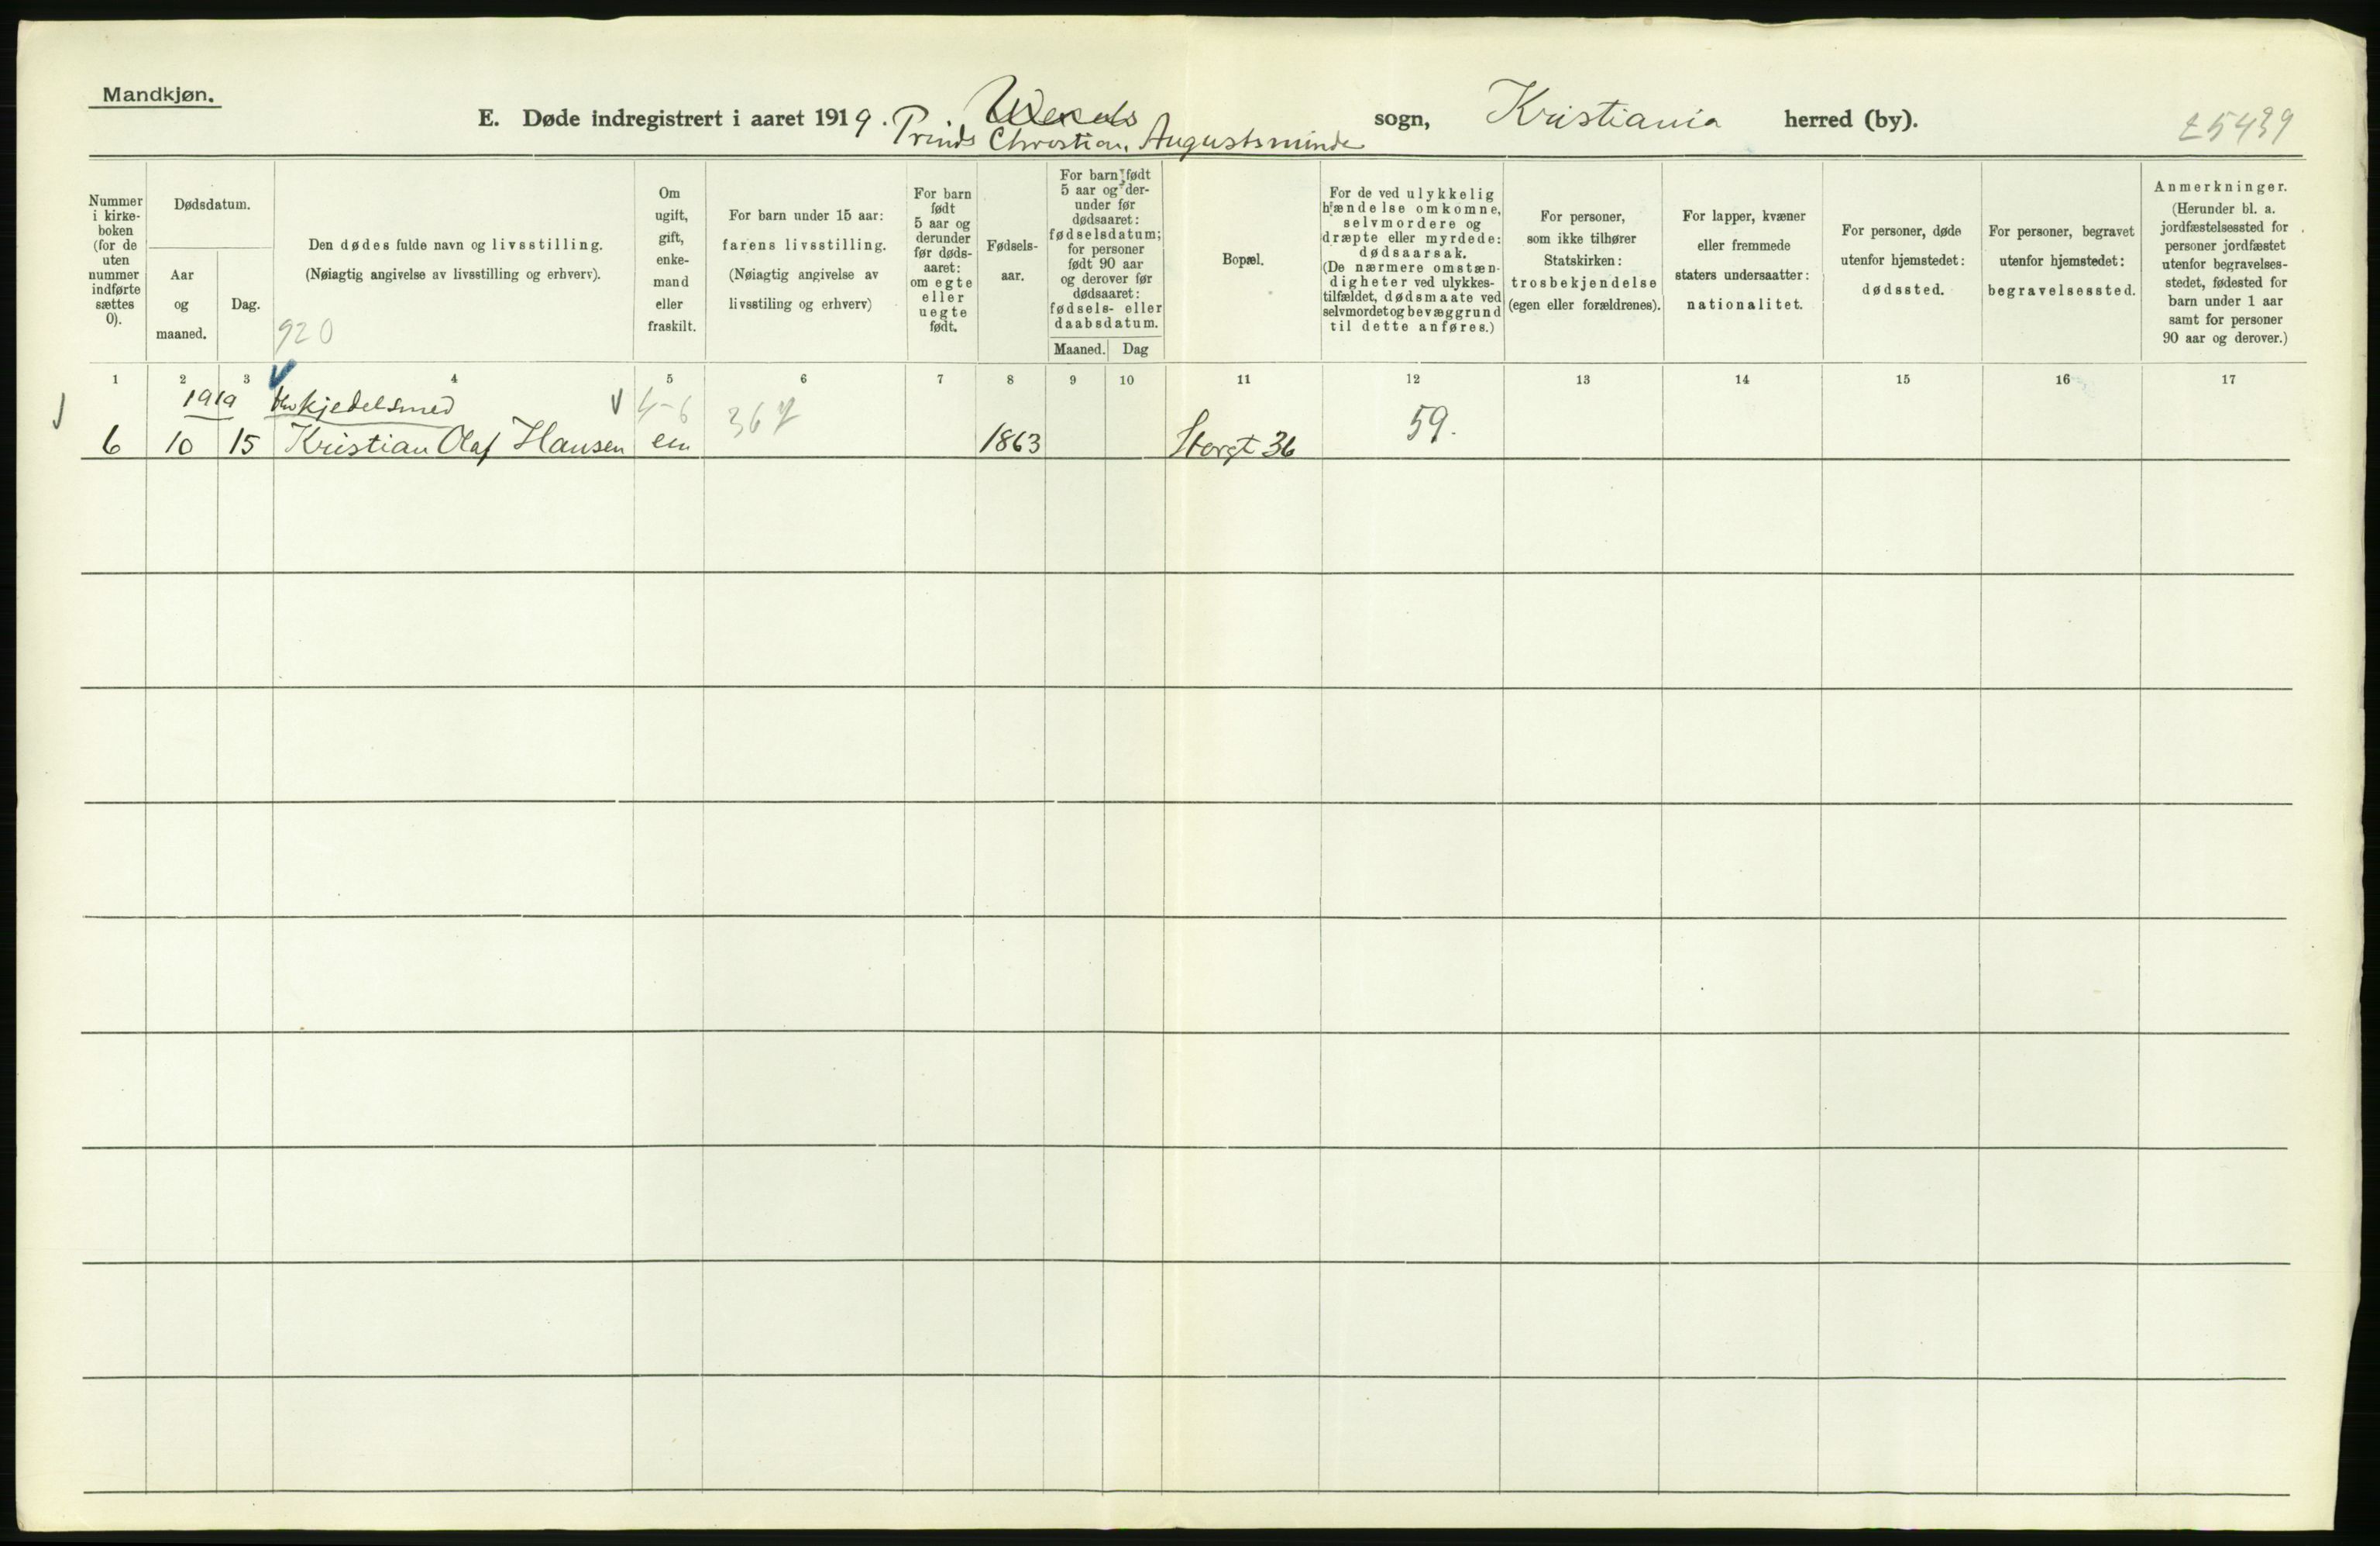 Mandkjøn.
E. Døde indregistrert i aaret 1919. Prinds Christian Augustsminde sogn, Kristiania herred (by).
5439
Nummer i kirke- boken (for de uten nummer indførte sættes 0).
Dødsdatum.
Aar og maaned.
Dag.
Den dødes fulde navn og livsstilling.
(Nøiagtig angivelse av livsstilling og erhverv).
920
Om ugift, gift, enke- mand eller fraskilt.
For barn under 15 aar:
farens livsstilling.
(Nøiagtig angivelse av livsstiling og erhverv)
For barn født 5 aar og derunder før døds- aaret: om egte eller uegte født.
Fødsels- aar.
For barn født 5 aar og der- under før dødsaaret: fødselsdatum; for personer født 90 aar og derover før dødsaaret: fødsels- eller daabsdatum.
Maaned.
Dag
Bopæl.
For de ved ulykkelig hændelse omkomne, selvmordere og dræpte eller myrdede: dødsaarsak.
(De nærmere omstæn- digheter ved ulykkes- tilfældet, dødsmaate ved selvmordet og bevæggrund til dette anføres.)
For personer, som ikke tilhører Statskirken: trosbekjendelse (egen eller forældrenes).
For lapper, kvæner eller fremmede staters undersaatter: nationalitet.
For personer, døde utenfor hjemstedet: dødssted.
For personer, begravet utenfor hjemstedet: begravelsessted.
Anmerkninger.
(Herunder bl. a. jordfæstelsessted for personer jordfæstet utenfor begravelses- stedet, fødested for barn under 1 aar samt for personer 90 aar og derover.)
1 2 3 4 5 6 7 8 9 10 11 12 13 14 15 16 17
1919 kjedelsmed 4-6 367
6 10 15 Kristian Olaf Hansen em 1863 Storgt 36 59.